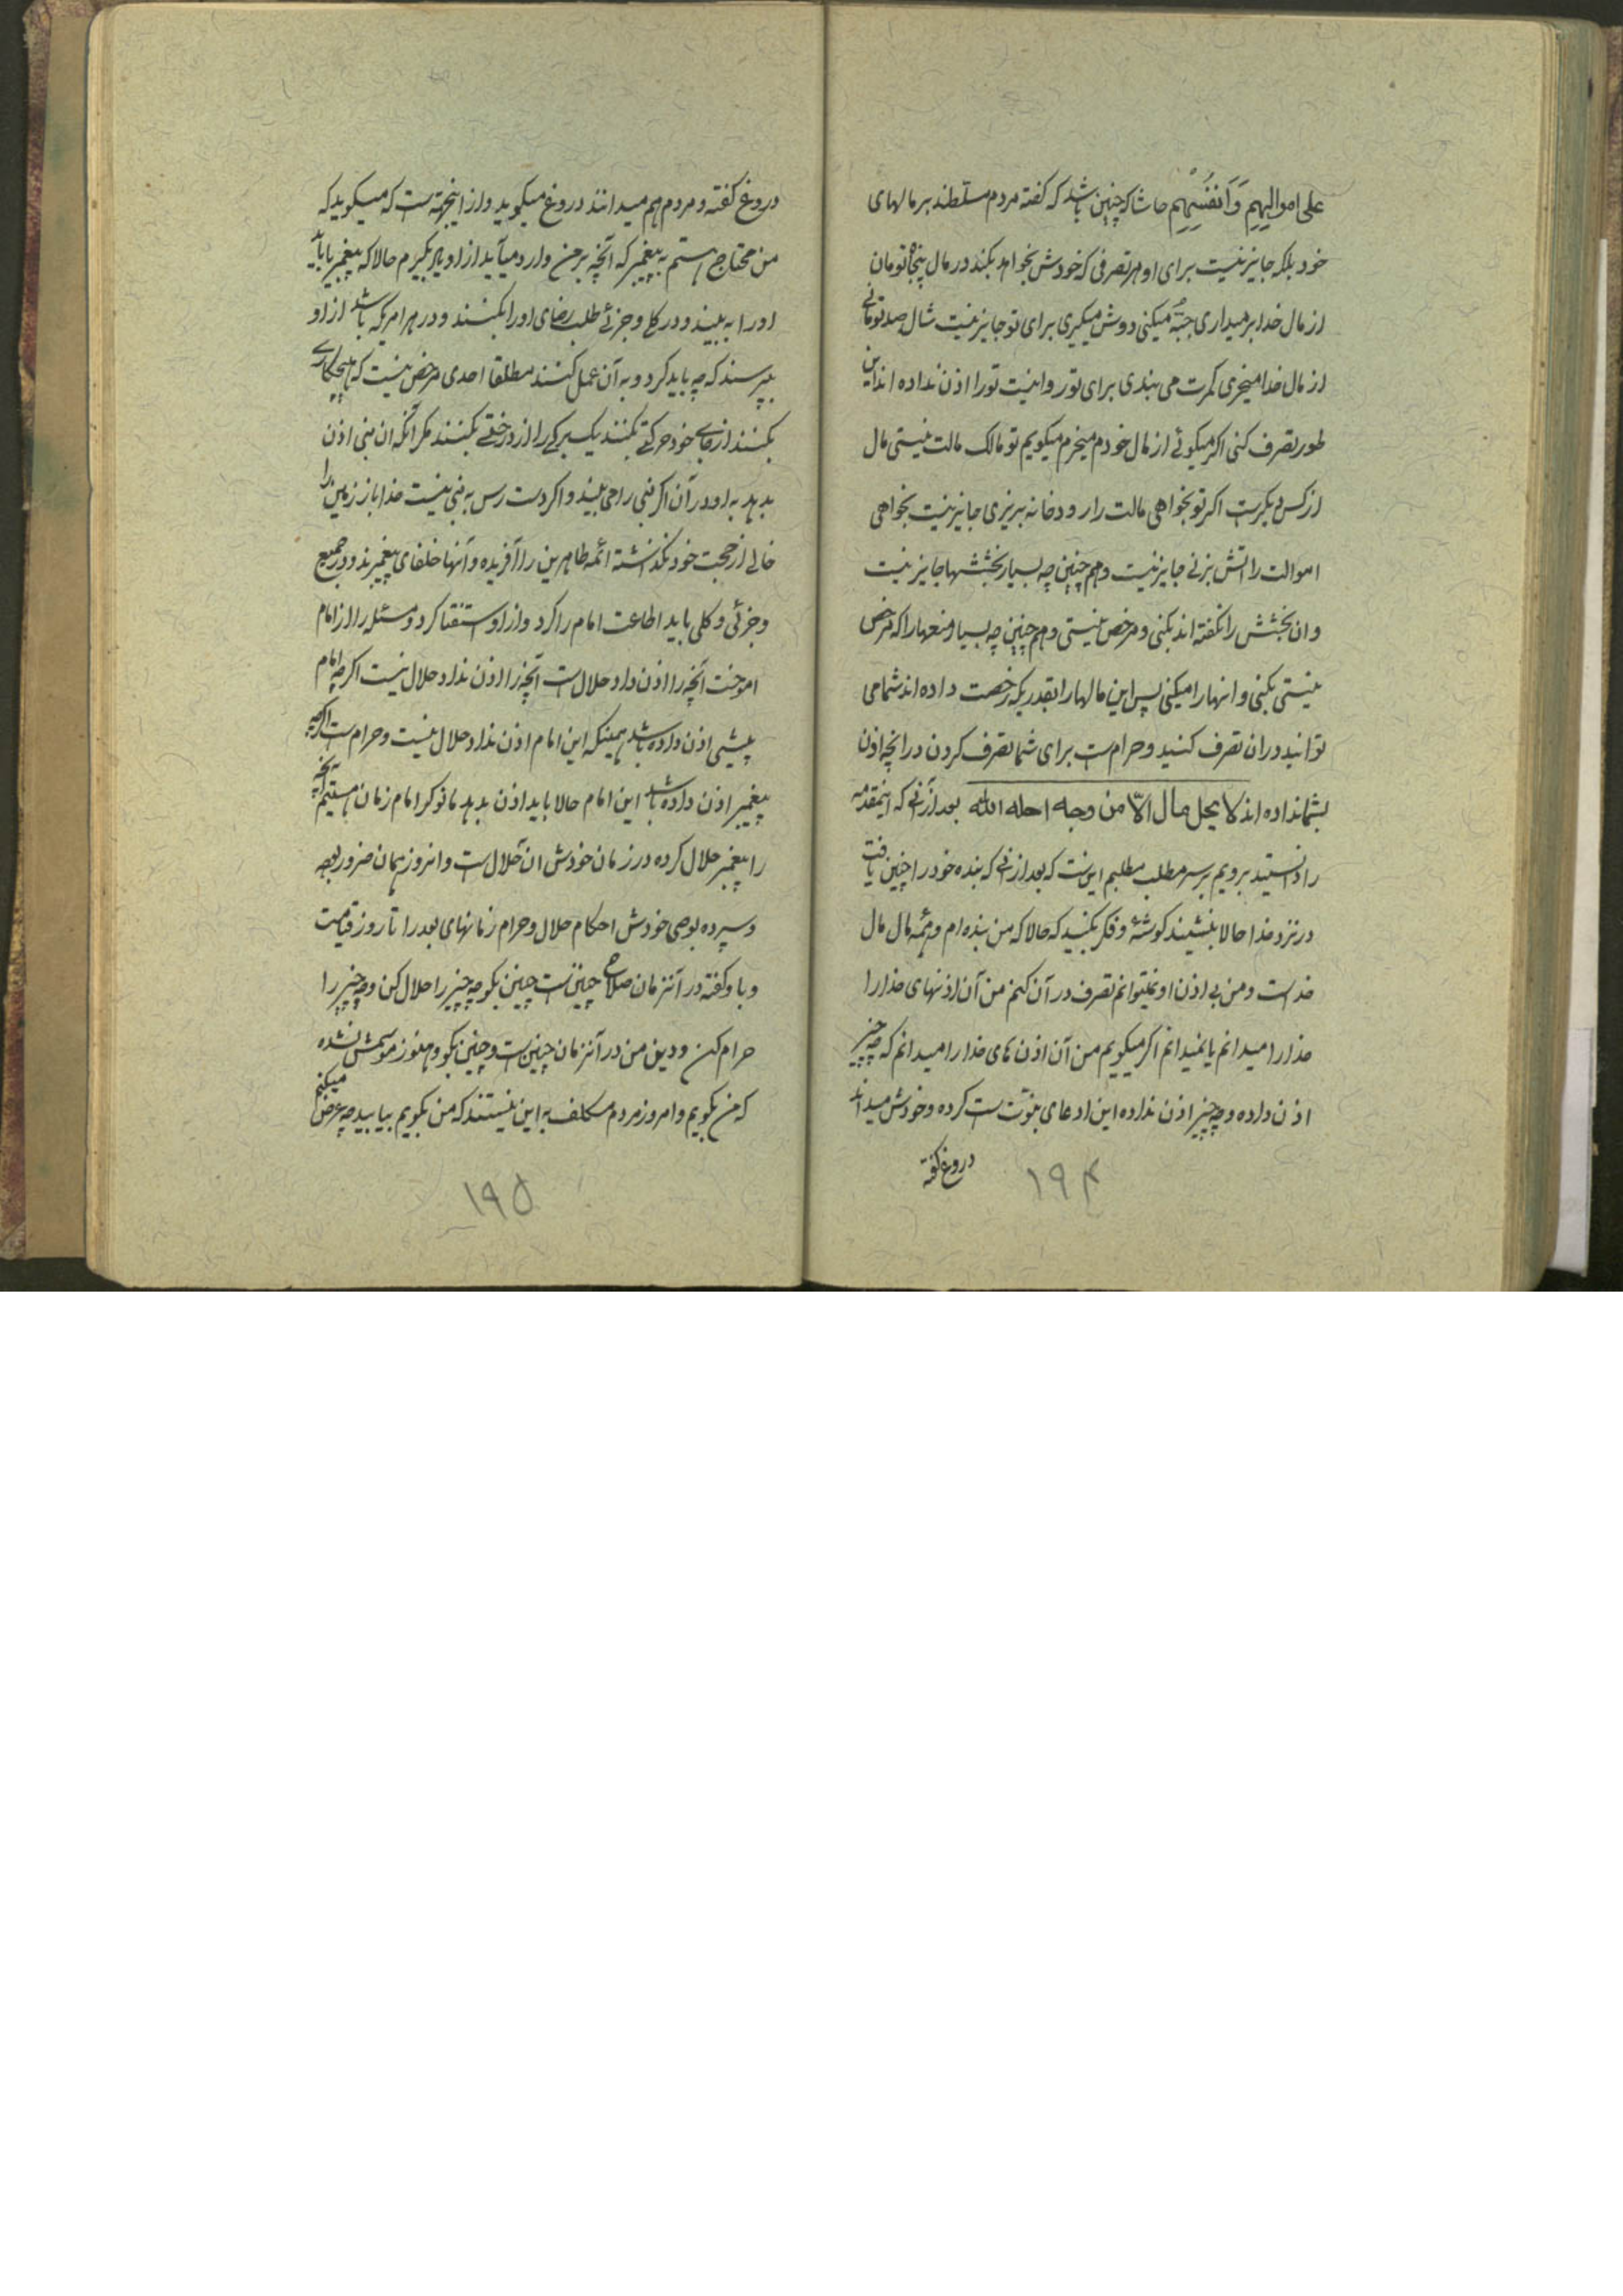 علی اموالِهِم وَ اَنفُسِهِم حاشا که چنین باشد که گفته مردم مسلطند بر مالهای
خود بلکه جایز نیست برای او هر تصرفی که خودش بخواهد بکند در مال پنجاه تومان
از مال خدا برمیداری جبّه میکنی دوش میگیری برای تو جایز نیست شال صد تومانی
از مال خدا میخری کمرت می بندی برای تو روا نیست تو را اذن نداده اند این
طور تصرف کنی اگر میگوئی از مال خودم میخرم میگویم تو مالک مالت نیستی مال
از کس دیگرست اگر تو بخواهی مالت را رودخانه بریزی جایز نیست بخواهی
اموالت را اتش بزنی جایز نیست و هم چنین چه بسیار بخششها جایز نیست
و ان بخشش را نگفته اند بکنی و مرخص نیستی و هم چنین چه بسیار منعها را که مرخص
نیستی بکنی و انها را میکنی پس این مالها را بقدریکه رخصت داده اند شما می
توانید در ان تصرف کنید و حرام ست برای شما تصرف کردن در انچه اذن
بشما نداده اند لا یحل مال الّا من وجه احله الله بعد از آنی که اینمقدمه
را دانستید برویم بر سر مطلب مطلبم این ست که بعد از انی که بنده خود را چنین یافت
در نزد خدا حالا بنشیند گوشهٔ و فکر بکنید که حالا که من بنده ام و همه مال مال
خداست و من بی اذن او نمیتوانم تصرف در آن کنم من آن اذنهای خدا را
خدا را میدانم یا نمیدانم اگر میگویم من آن اذن های خدا را میدانم که چه چیز
اذن داده و چه چیز اذن نداده این ادعای نبوّت ست کرده و خودش میداند
دروغ گفته
۱۹۴
دروغ گفته و مردم هم میدانند دروغ میگوید و از اینجهة ست که میگوید که
من محتاج هستم به پیغمبر که آنچه بر من وارد میآید از او یاد بگیرم حالا که پیغمبر با باید
او را به بینند و در کلی و جزئی طلب رضای او را بکنند و در هر امریکه باشد از او
بپرسند که چه باید کرد و به آن عمل کنند مطلقا احدی مرخص نیست که هیچکاری
بکنند از جای خود حرکتی بکنند یک برگی را از درختی بکنند مگر آنکه ان نبی اذن
بدهد به او در آن اگر نبی را می بیند و اگر دست رس به نبی نیست خدا باز زمین را
خالی از حجت خود نگذاشته ائمه طاهرین را آفریده و آنها خلفای پیغمبرند و در جمیع
و جزئی و کلی باید اطاعت امام را کرد و از او استفتا کرد و مسئله را از امام
اموخت آنچه را اذن داد حلال ست آنچه را اذن نداد حلال نیست اگر چه امام
پیشی اذن داده باشد همینکه این امام اذن نداد حلال نیست و حرام ست اگر چه
پیغمبر اذن داده باشد این امام حالا باید اذن بدهد ما نوکر امام زمان هستیم آنچه
را پیغمبر حلال کرده در زمان خودش ان حلال ست و انروز همان ضرور بوده
و سپرده بوصی خودش احکام حلال و حرام زمانهای بعد را تا روز قیامت
و باو گفته در آنزمان صلاح چنین ست چنین بگو چه چیز را حلال کن و چه چیز را
حرام کن و دین من در آنزمان چنین ست و چنین بگو و هنوز موسمش نشده
که من بگویم و امروز مردم مکلف به این نیستند که من بگویم بیایید چه عرض میکنم
۱۹۵